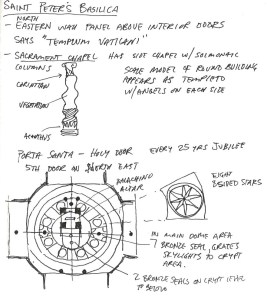 SAINT PETER'S BASILICA
NORTH
- EASTERN WALL PANEL ABOVE INTERIOR DOORS
SAYS "TEMPLUM VATICANI"
- SACRAMENT CHAPEL HAS SIDE CHAPEL W/ SOLMONTIC
COLUMNS
SCALE MODEL OF ROUND BUILDING
APPEARS AS TEMPIETO
W/ANGELS ON EACH SIDE
CARYATION
VEGETATION
ACANTHUS
PORTA SANTA - HOLY DOOR EVERY 25 YRS JUBILEE
5TH DOOR ON NORTH EAST
BALACHINO
ALTAR
EIGHT
SIDED STARS
IN MAIN DOME AREA
7 BRONZE SEAL, GRATES
SKYLIGHTS TO CRYPT
AREA.
2 BRONZE SEALS ON CRYPT LEVEL
TO BELOW